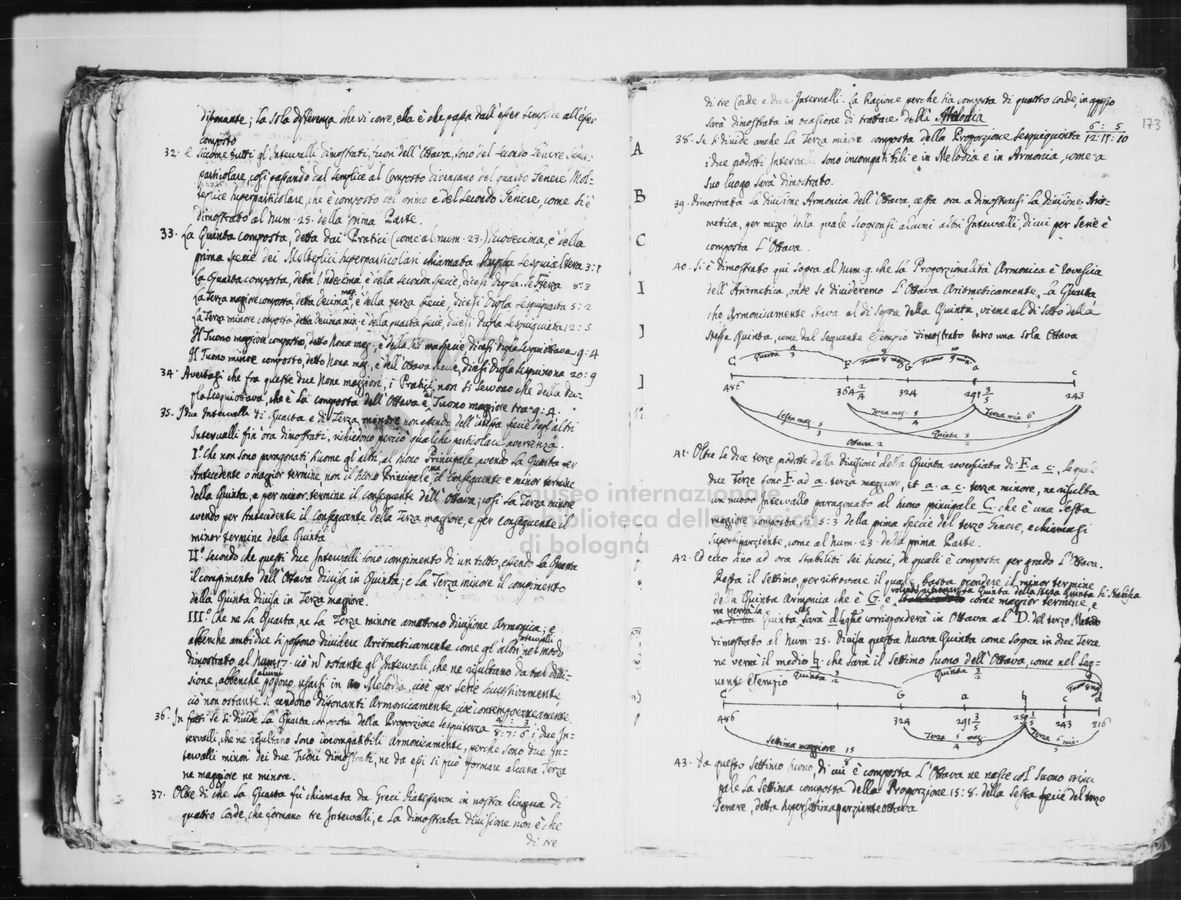 dissonante; la sola differenza che vi corre, ella è che passa dall'esser semplice all'esser
composto
32. E siccome tutti gl'Intervalli dimostrati, fuori dell'Ottava, sono del secondo Genere super-
particolare, così passando dal semplice al Composto divengono del quarto Genere Mol-
teplice superparticolare, che è composto del primo e del secondo Genere, come si è
dimostrato al num. 25. della prima Parte.
33. La Quinta composta, detta dai Pratici (come al num. 23.) Duodecima, è della
prima specie dei Molteplici superparticolari chiamata Dupla sesquialtera 3:1
La Quarta composta, detta Undecima è della seconda specie, dicesi Dupla se Terza 8:3
La Terza maggiore composta detta Decima mag. è della terza specie, dicesi Dupla sesquiquarta 5:2
La Terza minore composta detta Decima min. è della quarta specie, dicesi Dupla sesquiquinta 12:5
Il Tuono maggiore composto, detto Nona mag., è della specie dicesi Dupla sesquiottava 9:4
Il Tuono minore composto, detto Nona mag., è dell'Ottava specie, dicesi Dupla sesquinona 20:9
34. Avertasi che fra queste due None maggiori, i Pratici non si servono che della Du-
pla sesquiottava, che è la composta dell'Ottava e Tuono maggiore tra 9:4.
35. I due Intervalli di Quarta e di Terza minore non essendo dell'istessa specie degl'altri
Intervalli fin ora dimostrati, richiedono perciò qualche particolare avertenza.
I.° Che non sono paragonati siccome gl'altri, al suono Principale, avendo la Quarta per
Antecedente o maggior termine non il suono Principale, ma il conseguente e minor termine
della Quinta, e per minor termine il conseguente dell'Ottava; così la Terza minore
avendo per Antecedente il conseguente della Terza maggiore, e per conseguente il
minor termine della Quinta
II.° Secondo che questi due Intervalli sono compimento di un tutto, essendo la Quarta
il compimento dell'Ottava divisa in Quinta; e la Terza minore il compimento
della Quinta divisa in Terza maggiore.
III.° Che ne la Quarta, ne la Terza minore amettono divisione Armonica; e
abbenche ambidue si possono dividere Aritmeticamente come gl'altri Intervalli nel modo
dimostrato al Num. 17. ciò nonostante gl'Intervalli, che ne risultano da tal divi-
sione, abbenche alcuni possono usarsi in Melodia, cioè per serie successivamente
ciò non ostante si rendono disonanti Armonicamente, cioè contemporaneamente.
36. In fatti se si divide la Quarta composta della Proporzione sesquiterza 4:3 / 8:7:6 i due In-
tervalli, che ne risultano sono incompatibili armonicamente, perche sono due In-
tervalli minori dei due Tuoni dimostrati, ne da essi si può formare alcuna Terza
ne maggiore ne minore.
37. Oltre di che la Quarta fù chiamata da Greci Diatessaron in nostra lingua di
quattro corde, che formano tre Intervalli, e la dimostrata divisione non è che
di tre
173
di tre Corde e due Intervalli: La Ragione perche sia composta di quattro corde, in appresso
sarà dimostrata in ocasione di trattare della Melodia
38. Se si divide anche la Terza minore composta della Proporzione sesquiquinta 6:5 / 12:11:10
i due prodotti Intervalli sono incompatibili e in Melodia e in Armonia, come a
suo luogo sarà dimostrato.
39. Dimostrata la divisione Armonica dell'Ottava, resta ora a dimostrarsi la divisione Arit-
metica, per mezzo della quale scopronsi alcuni altri Intervalli, di cui per serie è
composta l'Ottava.
40. Si è dimostrato qui sopra al Num. 9. che la Proporzionalità Armonica è rovescia
dell'Aritmetica, onde se divideremo l'Ottava Aritmeticamente, la Quarta,
che Armonicamente stava al di sopra della Quinta, viene al di sotto della
stessa Quinta, come dal seguente esempio dimostrato entro una sola Ottava
C Quarta 4/3 F Tuono 9/8 mag. G Tuono 10/9 min. a c
486 364 2/4 324 291 3/5 243
Sesta mag. 5/3 Terza mag. 5/4 Terza min. 6/5
Quinta 3/2
Ottava 2
41. Oltre le due terze prodotte dalla divisione della Quinta rovesciata di F a c, le quali
due Terze sono F. ad a. terza maggiore, et a. a c. terza minore, ne risulta
un nuovo Intervallo paragonato al suono principale C. che è una Sesta
maggiore composta di 5:3 della prima specie del terzo Genere, e chiamasi
superparziente, come al Num. 23. della prima Parte.
42. Ed ecco fino ad ora stabiliti sei suoni, de quali è composta per grado l'Ottava.
Resta il Settimo, per ritrovare il quale basta prendere il minor termine
della Quinta Armonica che è G. e volendo ritrovare la Quinta della stessa Quinta si stabilisca come maggior termine, e
ne verrà la Quinta sarà che corrisponderà in Ottava al D. del terzo Modo
dimostrato al Num. 25. Divisa questa nuova Quinta come sopra in due Terze
ne verrà il medio ♮. che sarà il Settimo suono dell'Ottava, come nel seg-
uente Esempio
C Quinta 3/2 G Quinta 3/2 a ♮ c d
Tuono 9/8 mag.
486 324 291 3/5 259 1/5 243 216
Settima maggiore 15/8 Terza 5/4 mag. Terza 6/5 min.
43. Da questo settimo suono, di cui è composta l'Ottava ne nasce col suono princi-
pale la Settima composta della Proporzione 15:8. della Sesta specie del terzo
Genere, detta supersettimaparzienteottava
A
B
C
museo internazionale
biblioteca della musica
di bologna